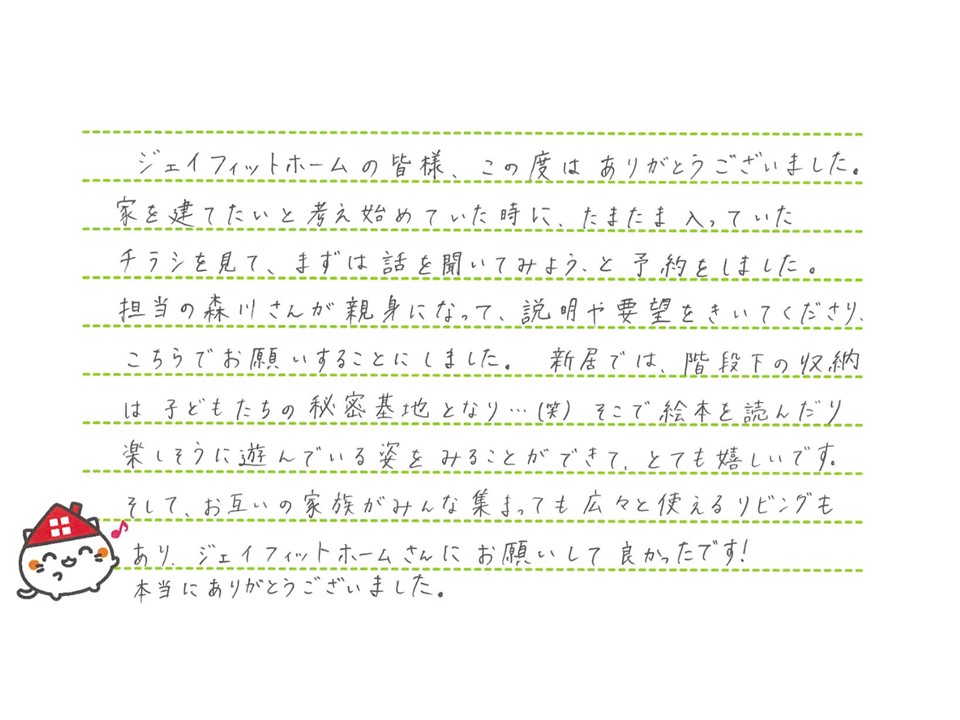 ジェイフィットホームの皆様、この度は ありがとうございました。
家を建てたいと考え始めていた時に、たまたま入っていた
チラシを見て、まずは話を聞いてみよう、と予約をしました。
担当の森川さんが親身になって、説明や要望をきいてくださり、
こちらでお願いすることにしました。 新居では、階段下の収納
は子どもたちの秘密基地となり…(笑) そこで絵本を読んだり
楽しそうに遊んでいる姿をみることができて、とても嬉しいです。
そして、お互いの家族がみんな集まっても広々と使えるリビングも
あり、ジェイフィットホームさんにお願いして良かったです!
本当にありがとうございました。